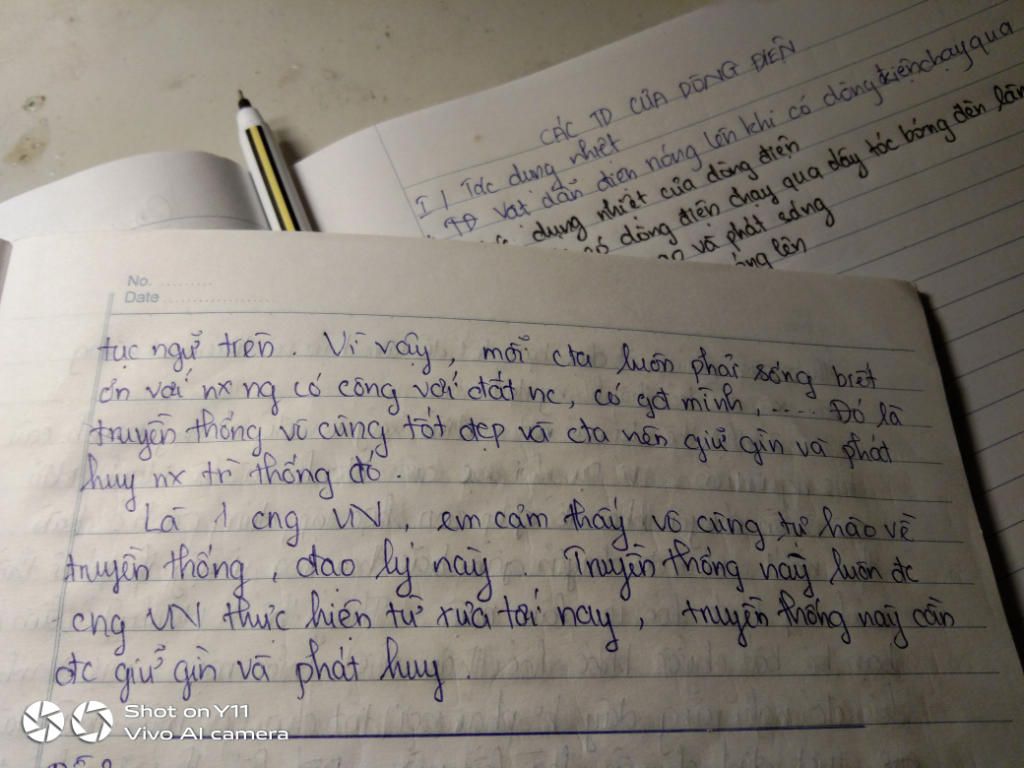 CÁC TD CỦA DÒNG ĐIỆN
I / Tác dụng nhiệt
Vật dẫn điện nóng lên khi có dòng điện chạy qua
dụng nhiệt của dòng điện
có dòng điện chạy qua dây tóc bóng đèn làm
và phát sáng
lên
No. ..........
Date ....................
tục ngữ trên. Vì vậy, mỗi cta luôn phải sống biết
ơn với nx ng có công với đất nc, có gđ mình, .... Đó là
truyền thống vô cùng tốt đẹp và cta nên giữ gìn và phát
huy nx tr thống đó.
Là 1 cng VN, em cảm thấy vô cùng tự hào về
truyền thống, đạo lý này. Truyền thống này luôn đc
cng VN thực hiện từ xưa tới nay, truyền thống này cần
đc giữ gìn và phát huy.
Shot on Y11
Vivo AI camera